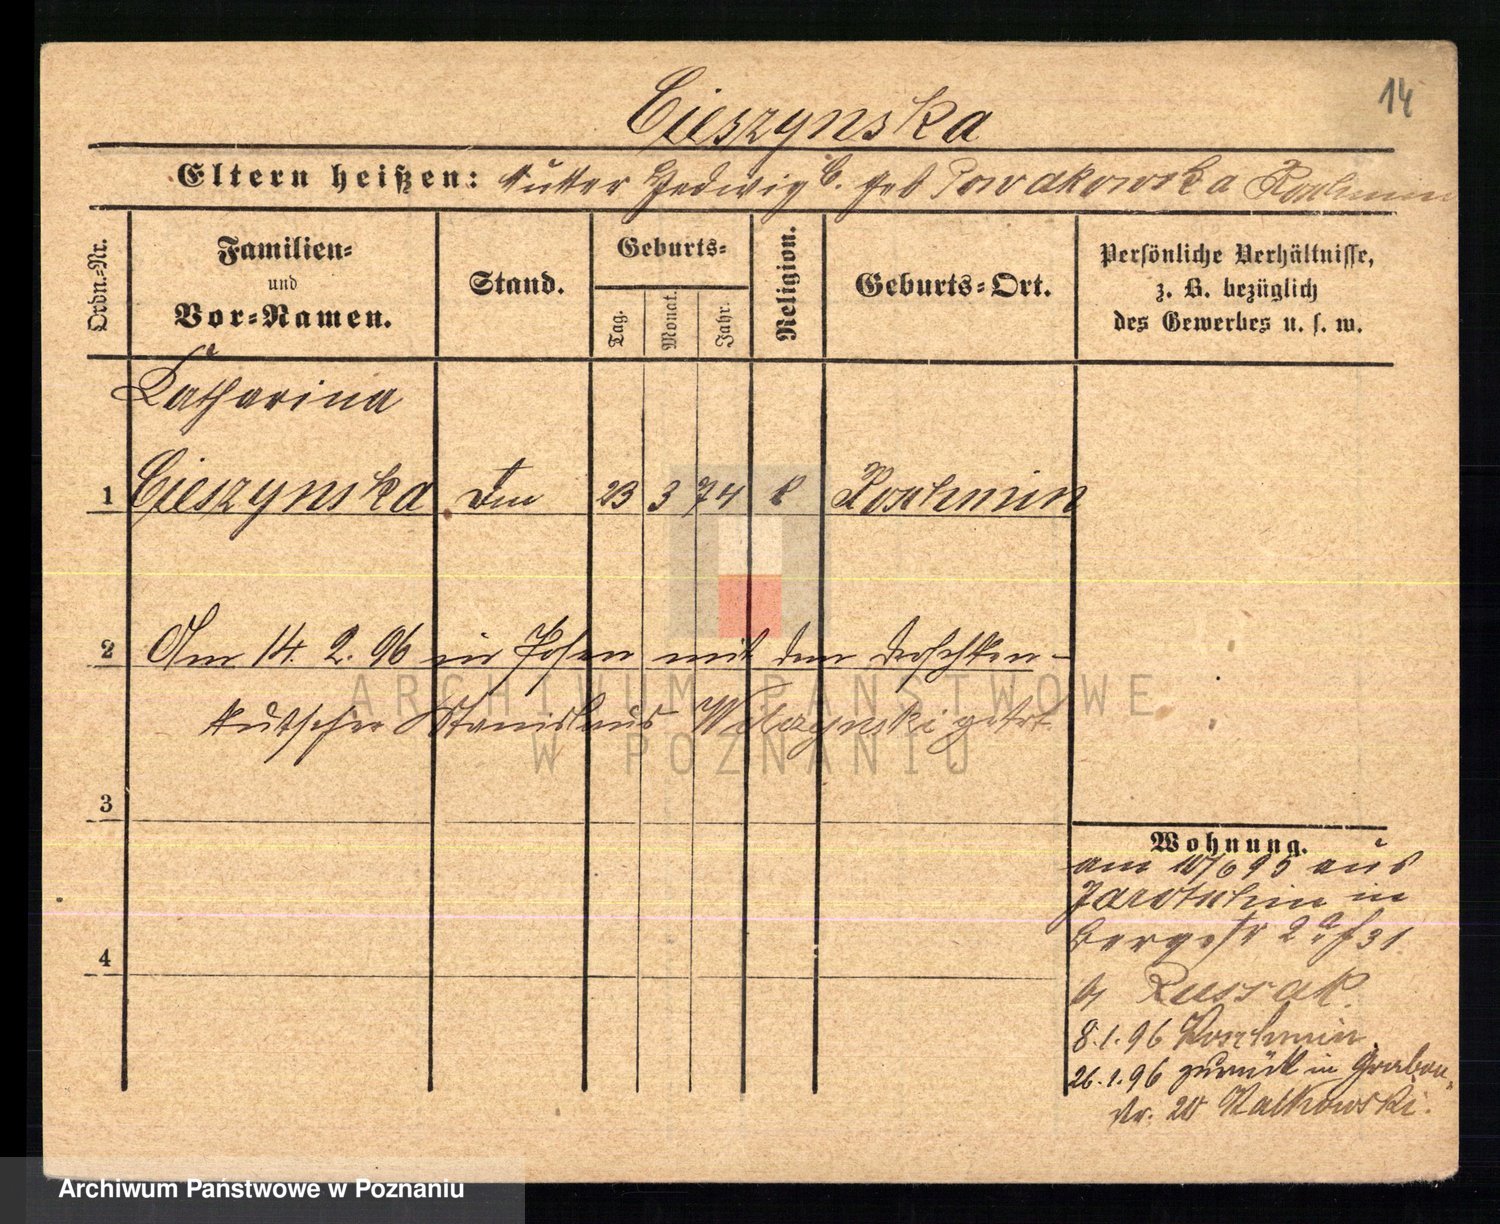 14
Cieszynska
Eltern heißen: Mutter Hedwig C. geb Nowakowska Koschmin
Ordn.-Nr.
Familien-
und
Vor-Namen.
Stand.
Geburts-
Tag.
Monat.
Jahr.
Religion.
Geburts-Ort.
Persönliche Verhältnisse,
z. B. bezüglich
des Gewerbes u. s. w.
Katharina
1 Cieszynska 23 3 74 k Koschmin
2 Am 14. 2. 96 in Posen mit dem Droschken-
kutscher Stanislaus Wilczynski getr.
3
4
Wohnung.
am 10/6 95 aus
Jarotschin in
Bergstr 31
b/ Russak.
8.1.96 Koschmin
26.1.96 zurück in Graben-
str. Malkowski.
ARCHIWUM PAŃSTWOWE
W POZNANIU
Archiwum Państwowe w Poznaniu